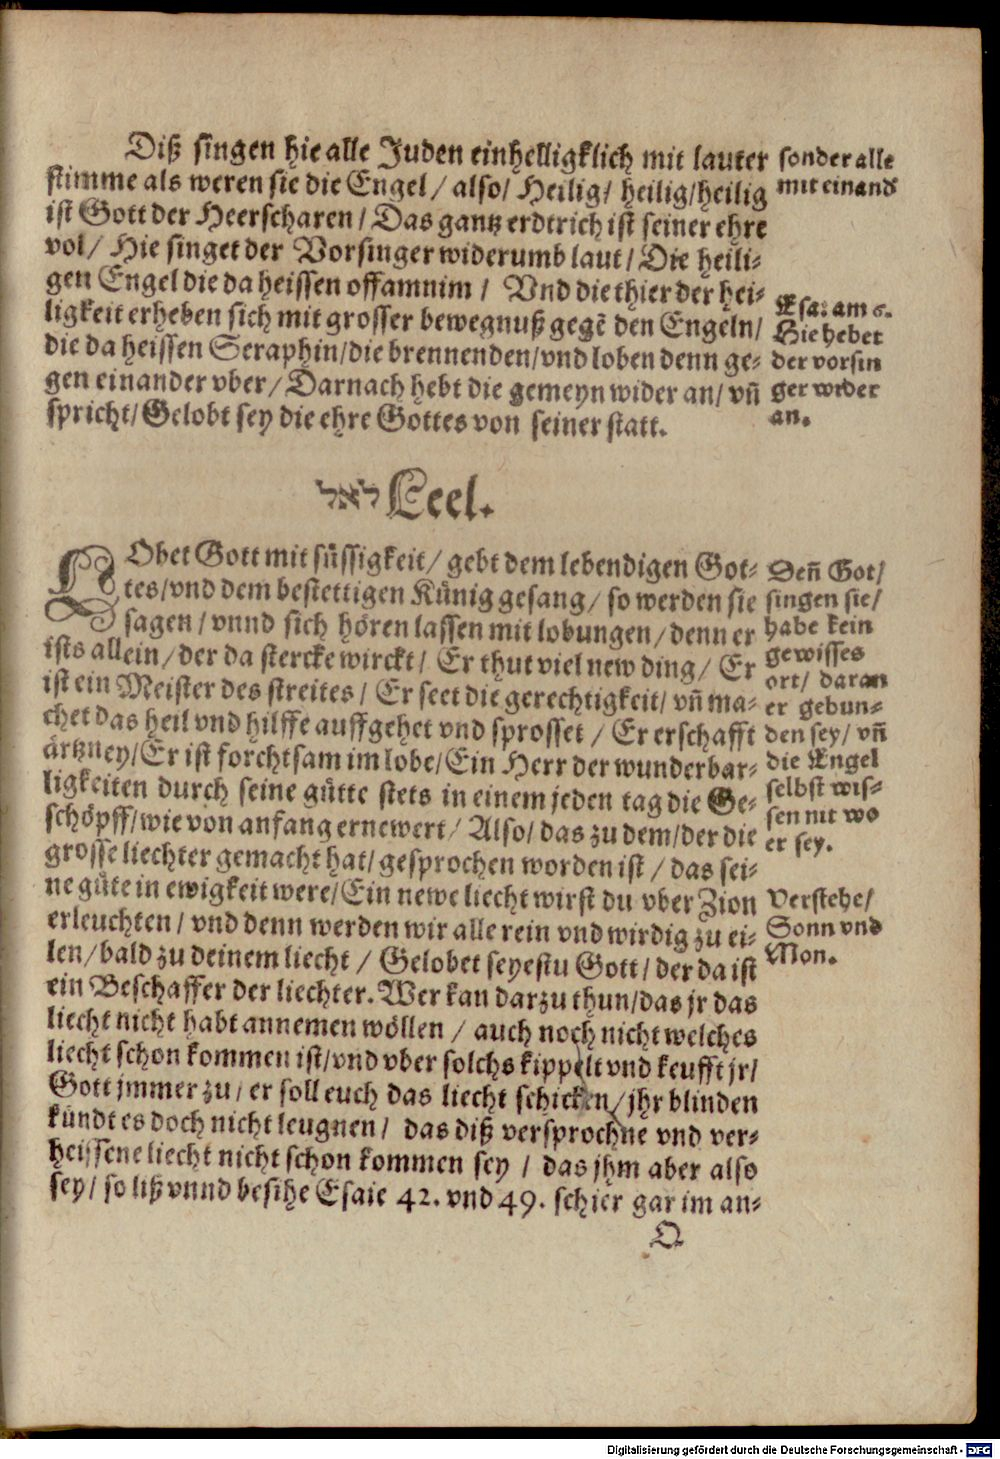 Diß singen hie alle Juden einhelligklich mit lauter
stimme als weren sie die Engel / also/ Heilig/ heilig/heilig
ist Gott der Heerscharen / Das gantz erdtrich ist seiner ehre
vol/ Hie singet der Vorsinger widerumb laut / Die heili⸗
gen Engel die da heissen offamnim / Vnd die thier der hei⸗
ligkeit erheben sich mit grosser bewegnuß gegẽ den Engeln/
die da heissen Seraphin/die brennenden/vnd loben denn ge⸗
gen einander vber/ Darnach hebt die gemeyn wider an/ vñ
spricht/ Gelobt sey die ehre Gottes von seiner statt.
sonder alle
mit einand
Esa: am 6.
Hie hebet
der vorsin
ger wider
an.
לאל Leel.
LObet Gott mit süssigkeit/ gebt dem lebendigen Got⸗
tes/vnd dem bestettigen Künig gesang/ so werden sie
sagen / vnnd sich hören lassen mit lobungen/ denn er
ists allein/ der da stercke wirckt/ Er thut viel new ding/ Er
ist ein Meister des streites/ Er seet die gerechtigkeit/ vñ ma⸗
chet das heil vnd hilffe auffgehet vnd sprosset / Er erschafft
ärtzney/Er ist forchtsam im lobe/Ein Herr der wunderbar⸗
ligkeiten durch seine gütte stets in einem jeden tag die Ge⸗
schöpff/wie von anfang ernewert/ Also/ das zu dem/der die
grosse liechter gemacht hat/ gesprochen worden ist / das sei⸗
ne güte in ewigkeit were/Ein newe liecht wirst du vber Zion
erleuchten / vnd denn werden wir alle rein vnd wirdig zu ei⸗
len/bald zu deinem liecht / Gelobet seyestu Gott/ der da ist
ein Beschaffer der liechter. Wer kan darzu thun/das jr das
liecht nicht habt annemen wöllen / auch noch nicht welches
liecht schon kommen ist/vnd vber solchs kippelt vnd keufft jr/
Gott jmmer zu/ er soll euch das liecht schicken/jhr blinden
kündt es doch nicht leugnen/ das diß versprochne vnd ver⸗
heissene liecht nicht schon kommen sey / das jhm aber also
sey/ so liß vnnd besihe Esaie 42. vnd 49. schier gar im an⸗
Deñ Got/
singen sie/
habe kein
gewisses
ort/ daran
er gebun⸗
den sey/ vñ
die Engel
selbst wis⸗
sen nit wo
er sey.
Verstehe/
Sonn vnd
Mon.
Q
Digitalisierung gefördert durch die Deutsche Forschungsgemeinschaft - DFG